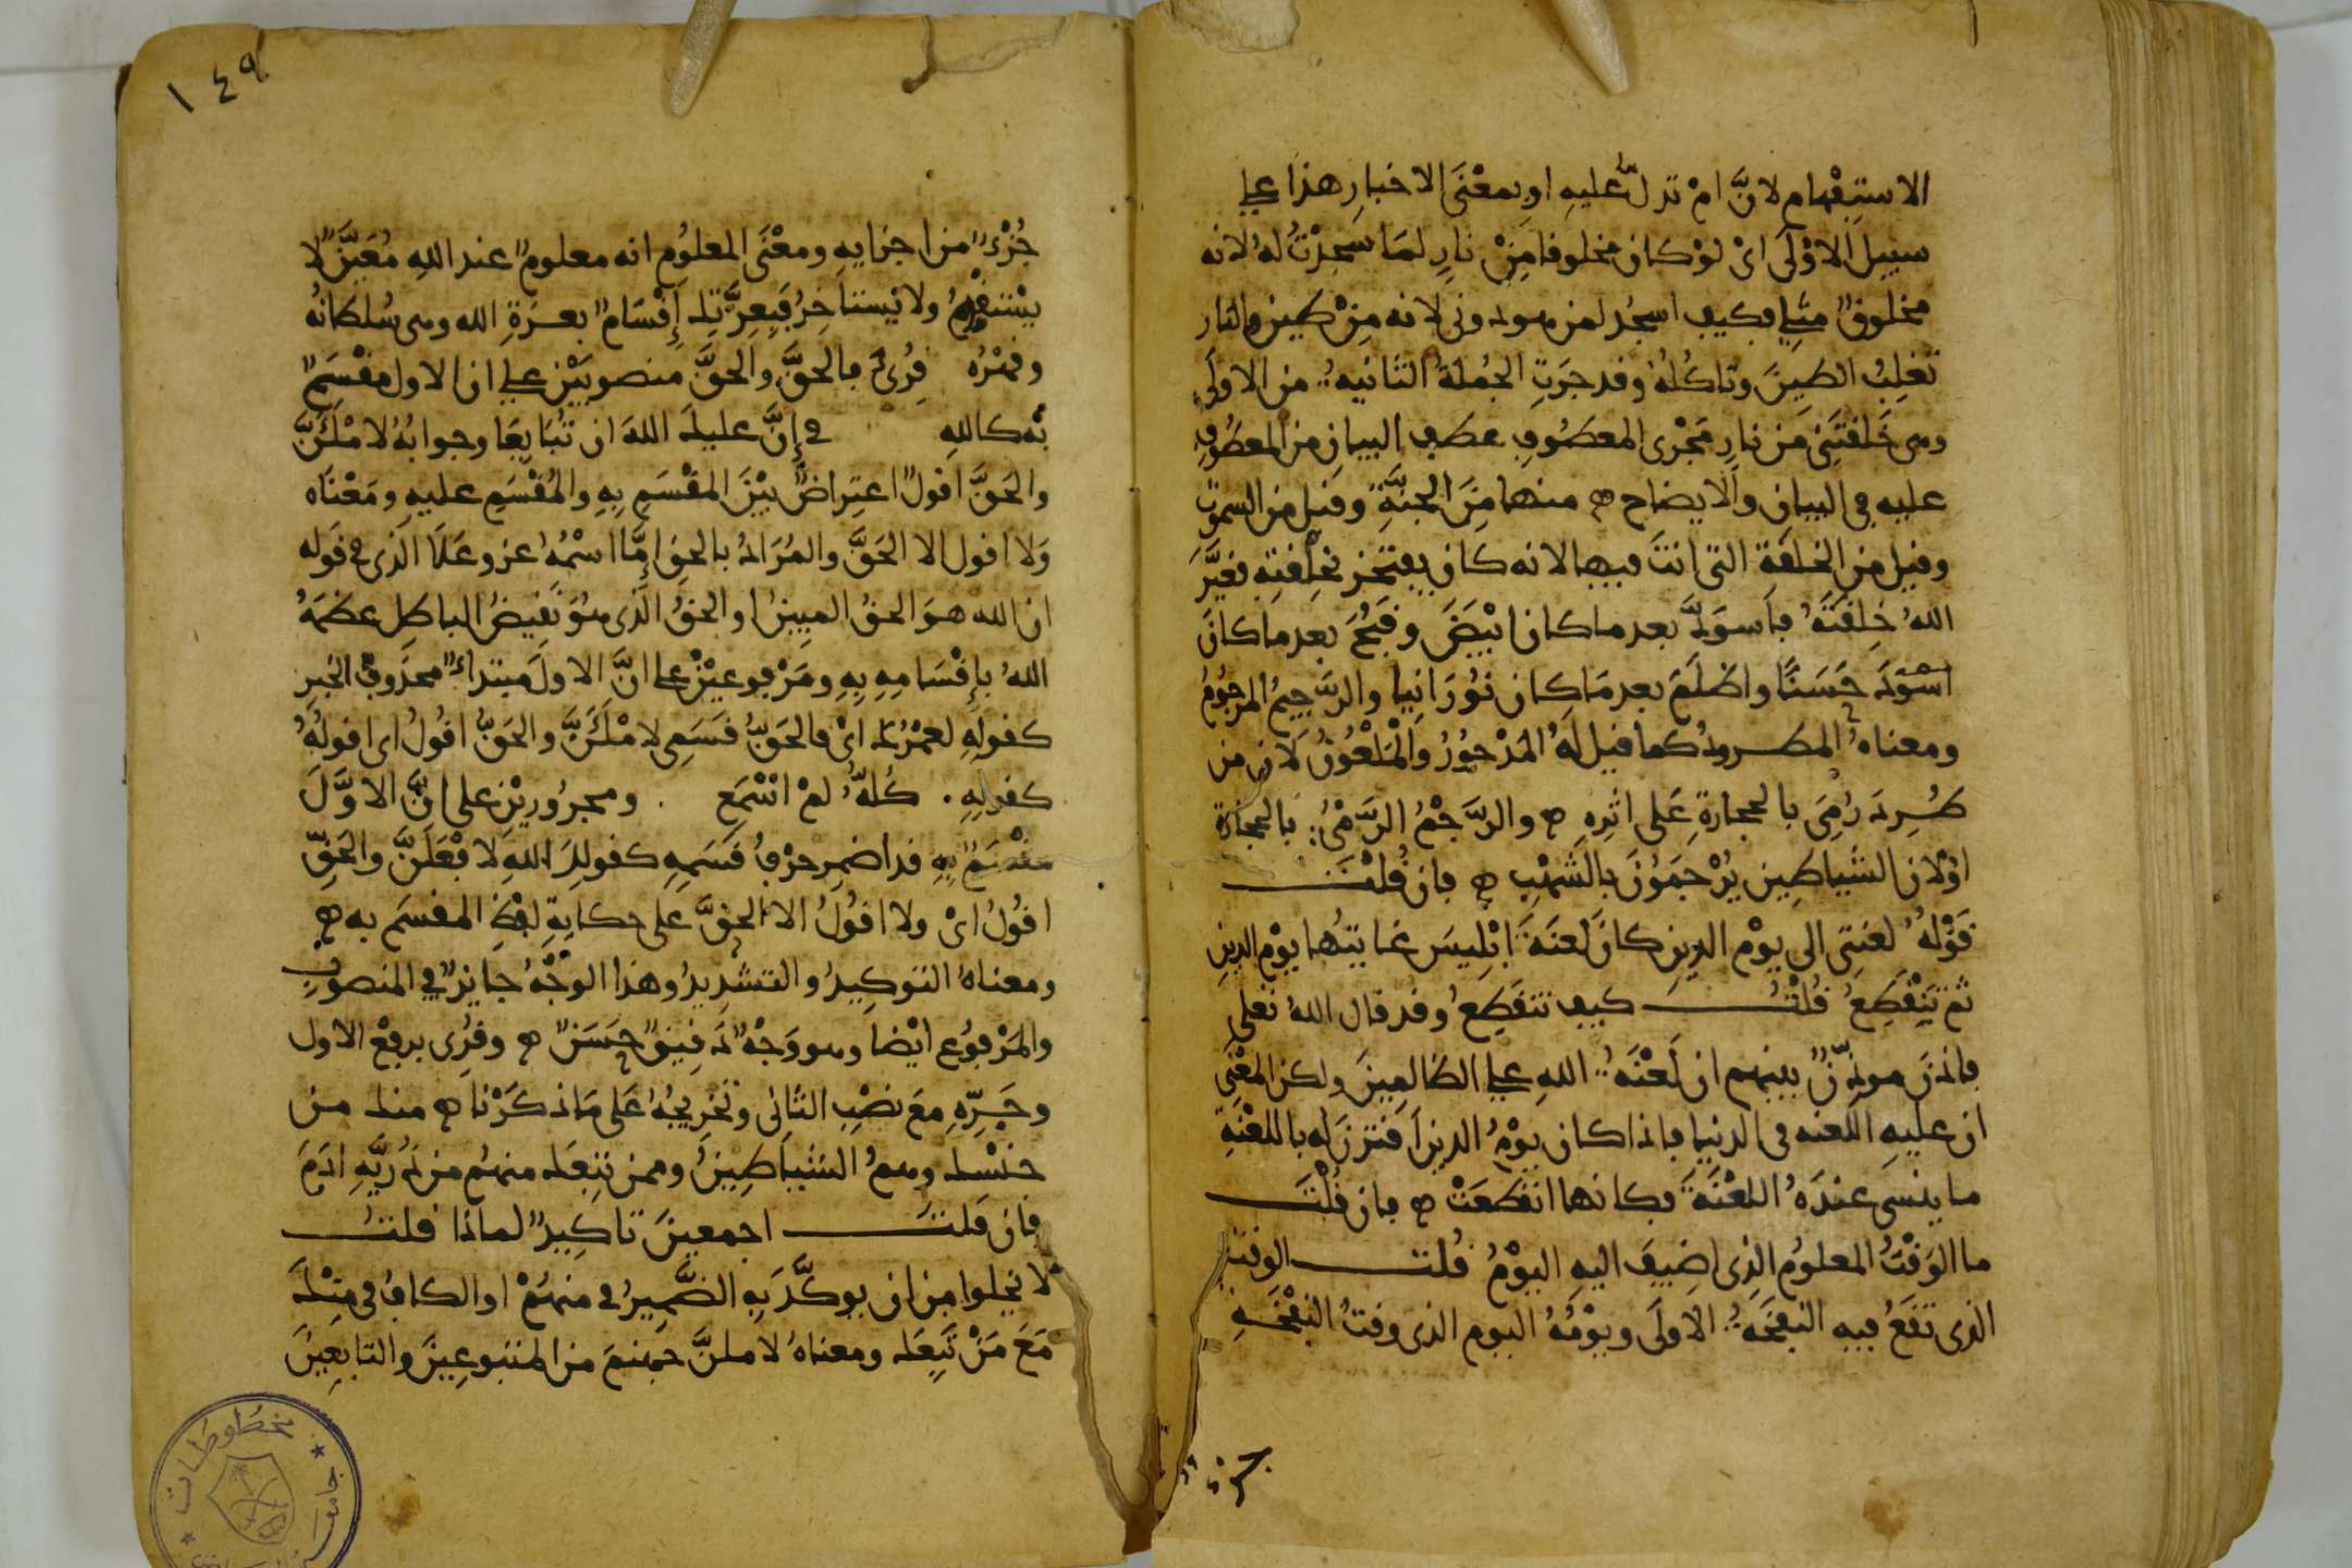 الاستفهام لانَّ امْ تدلّ عليهِ او بمعْنَى الاخبارِ هذا على
سبيل الاوْلَى ائْ لوْ كان مخلوقا مِنْ نارٍ لمَا سَجدْتُ لهُ لانه
مخلوقٌ مثلي فكيف اسجُد لمن هو دونى لانه مِنْ طين والنار
تغلِبُ الطينَ وتاكُلُه وقد جرَتِ الجُملَةُ الثانيه من الاولَى
وهى خَلقتَنِى من نارٍ مَجْرى المعطوفِ عطف البيانِ من المعطوفِ
عليه فى البيانِ والايضاح ه منها مِنَ الجنَّةِ وقيل من السموت
وقيل من الخلقة التى انتَ فيها لانه كان يفتخر بخِلْقتِهِ فغيَّرَ
اللهُ خِلقَتَهُ فاَسوَدَّ بعد ما كان ابْيَضَ وقَبُحَ بعد ما كانَ
حَسَنًا واظلَمَ بعد مَا كان نُورَانِيا والرَّجيمُ المرجُومُ
ومعناهُ المطرودُ كما قيل لهُ المَدْحورُ والمَلْعُونُ لان من
طُرِدَ رُمِىَ بالحجارةِ عَلى اثرِهِ ه والرَّجْمُ الرَّمْىُ بالحجارة
اوْ لان الشياطين يُرْجَمُونَ بالشُّهُبِ ه فان قُلْتَ
قَوْلهُ لعنتِى الى يوْم الدين كانَ لعنَةَ ابْلِيسَ غايتُها يوْم الدينِ
ثم تَنْقَطِعُ قُلْتُ كيف تنقَطِعُ وقد قال اللهُ تعلى
فاذنَ موذِّنٌ بينهم ان لَعْنَةُ اللهِ على الظالمِينَ ولكن المعْنَى
ان عليهِ اللعنه فى الدنيا فاذا كان يوْمُ الدين اقترن له باللعْنةِ
ما ينسى عندَهُ اللعْنَةَ فكانها انقطعَتْ ه فان قُلْتَ
ما الوَقْتُ المعلومُ الذِى اضِيفَ اليهِ اليوْمُ قُلت الوقت
الذى تقَعُ فيه النفخَهُ الاولَى ويوْمُهُ اليوم الذى وقتُ النفْخَهِ
١٤٩
جُزْءٌ من اجزايهِ ومعْنَى المعلوُم انه معلومٌ عند اللهِ مُعَيَّنٌ لا
يستقدِمُ ولا يستاخِرُ فبِعزَّتِك إِقْسَامٌ بعزةِ الله وهى سُلطانُهُ
وقهْرُه قُرئَ فالحَقَّ والحقَّ منصوبَيْن على ان الاول مقْسَمٌ
به كاللهِ فى إِنَّ عليكَ اللهَ ان تُبَايِعَا وجوابُهُ لامْلَئَنَّ
والحَقَّ اقولُ اعتِراضٌ بيْنَ المقْسَمِ بهِ والمُقْسَمِ عليهِ ومَعْنَاه
وَلا اقول الا الحَقَّ والمُرَادُ بالحقِ إِمَّا اسْمُهُ عز وعَلَا الذى فى قوله
ان الله هوَ الحقُ المبين او الحقُ الَّذى هوَ نَقيضُ الباطِل عظمَهُ
اللهُ بإِقْسَامِهِ بِهِ ومَرْفوعيْنِ على انَّ الاولَ مبتداءٌ محذوفُ الخبرِ
كقولِهِ لعمْرُكَ ائْ فالحَقُّ قسَمِى لامْلَئَنَّ والحَقُّ اقُولُ اى اقولُهُ
كقولِهِ . كُلُّهُ لمْ اصْنَعِ . ومجرُوريْنِ على انَّ الاوَّلَ
مقْسَمٌ بِهِ قد اضمِر حرْفُ قَسَمِهِ كقولِكَ اللهِ لافْعَلَنَّ والحَقِّ
اقُولُ ائْ ولا اقُولُ الا الحقَّ على حكايةِ لفْظِ المقسَم به ه
ومعناهُ التوكِيدُ والتشدِيدُ وهذا الوَجْهُ جايزٌ فى المنصوبِ
والمَرْفوُع ايْضا وهو وَجْهٌ دَقِيقٌ حَسَنٌ ه وقُرِى برفْع الاول
وجَرِّهِ معَ نصْبِ الثانى وتخريجُهُ عَلى مَا ذكَرْنا ه منك من
جنْسِك وهمُ الشياطِينُ وممن تبعَك منهُم من ذُريَّهِ ادَمَ
فان قلتَ اجمعينَ تاكِيدٌ لماذا قلتُ
لا يخلوا من ان يوكَّدَ بهِ الضَّمِيرُ فى منهُمْ او الكافُ فى مِنْكَ
مَعَ مَنْ تَبِعَك ومعناهُ لاملنَّ جهنمَ من المتبوعِينَ والتابعِينَ
مخطوطات
جامعة